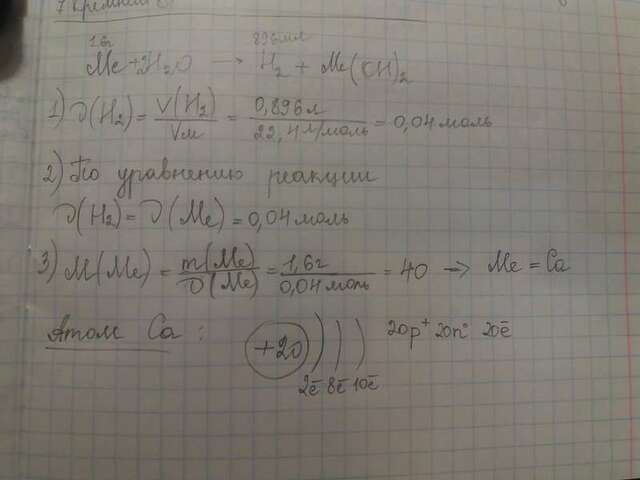 7 Кремний
1,6г 896мл
Me + 2H₂O → H₂ + Me(OH)₂
1) ν(H₂) = V(H₂)/Vм = 0,896л/22,4 л/моль = 0,04 моль
2) По уравнению реакции
ν(H₂) = ν(Me) = 0,04 моль
3) M(Me) = m(Me)/ν(Me) = 1,6г/0,04 моль = 40 → Me = Ca
Атом Ca : +20 ) ) ) 20p⁺ 20n⁰ 20ē
2ē 8ē 10ē